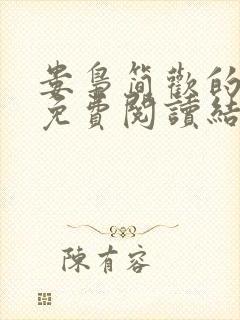 婁梟簡歡的
免費閱讀結
陳有容